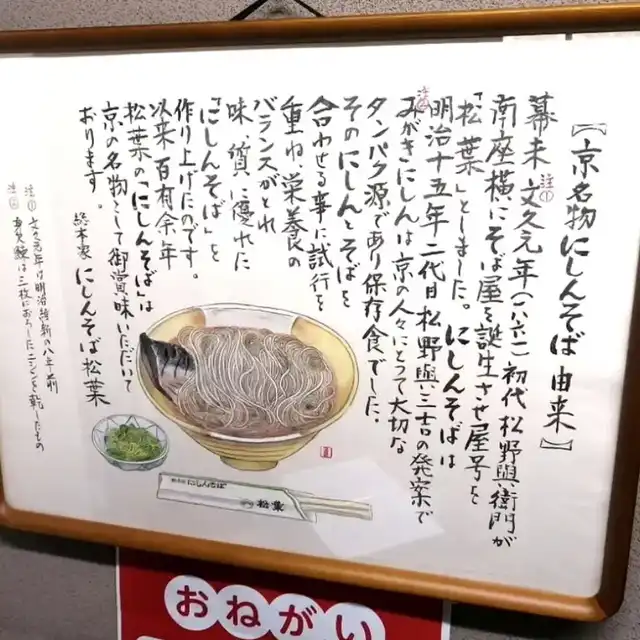 【京名物にしんそば由来】
幕末 文久元年(一八六一)初代 松野與衛門が
注①
南座横にそば屋を誕生させ屋号を
「松葉」としました。にしんそばは
明治十五年 二代目 松野與三吉の発案で
注②
みがきにしんは京の人々にとって大切な
タンパク源であり保存食でした。
そのにしんとそばを
合わせる事に試行を
重ね、栄養の
バランスがとれ
味、質に優れた
「にしんそば」を
作り上げたのです。
以来 百有余年
松葉の「にしんそば」は
京の名物として御賞味いただいて
おります。
総本家 にしんそば 松葉
注① 文久元年は明治維新の八年前
注② 身欠鰊は三枚におろしたニシンを乾したもの
にしんそば
松葉
おねがい